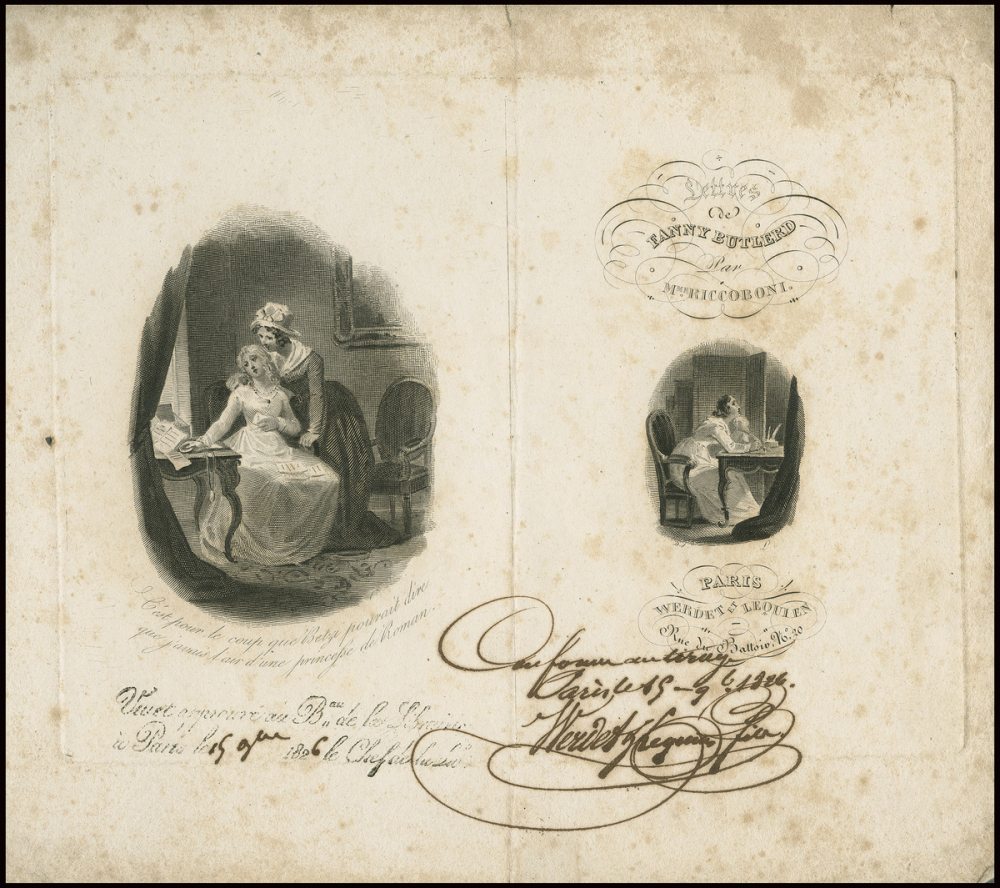 C'est pour le coup que Betzi pourrait dire
que jamais l'air d'une princesse de Roman.
Vu et approuvé au B.au de la Librairie
à Paris le 15 9bre 1826 le Chef du
Lettres
de
FANNY BUTLERD
Par
Mme RICCOBONI.
PARIS
WERDET ET LEQUIEN
Rue du Battoir, No. 20
Conforme au tirage
Paris le 15 - 9b. 1826.
Werdet & Lequien fils.